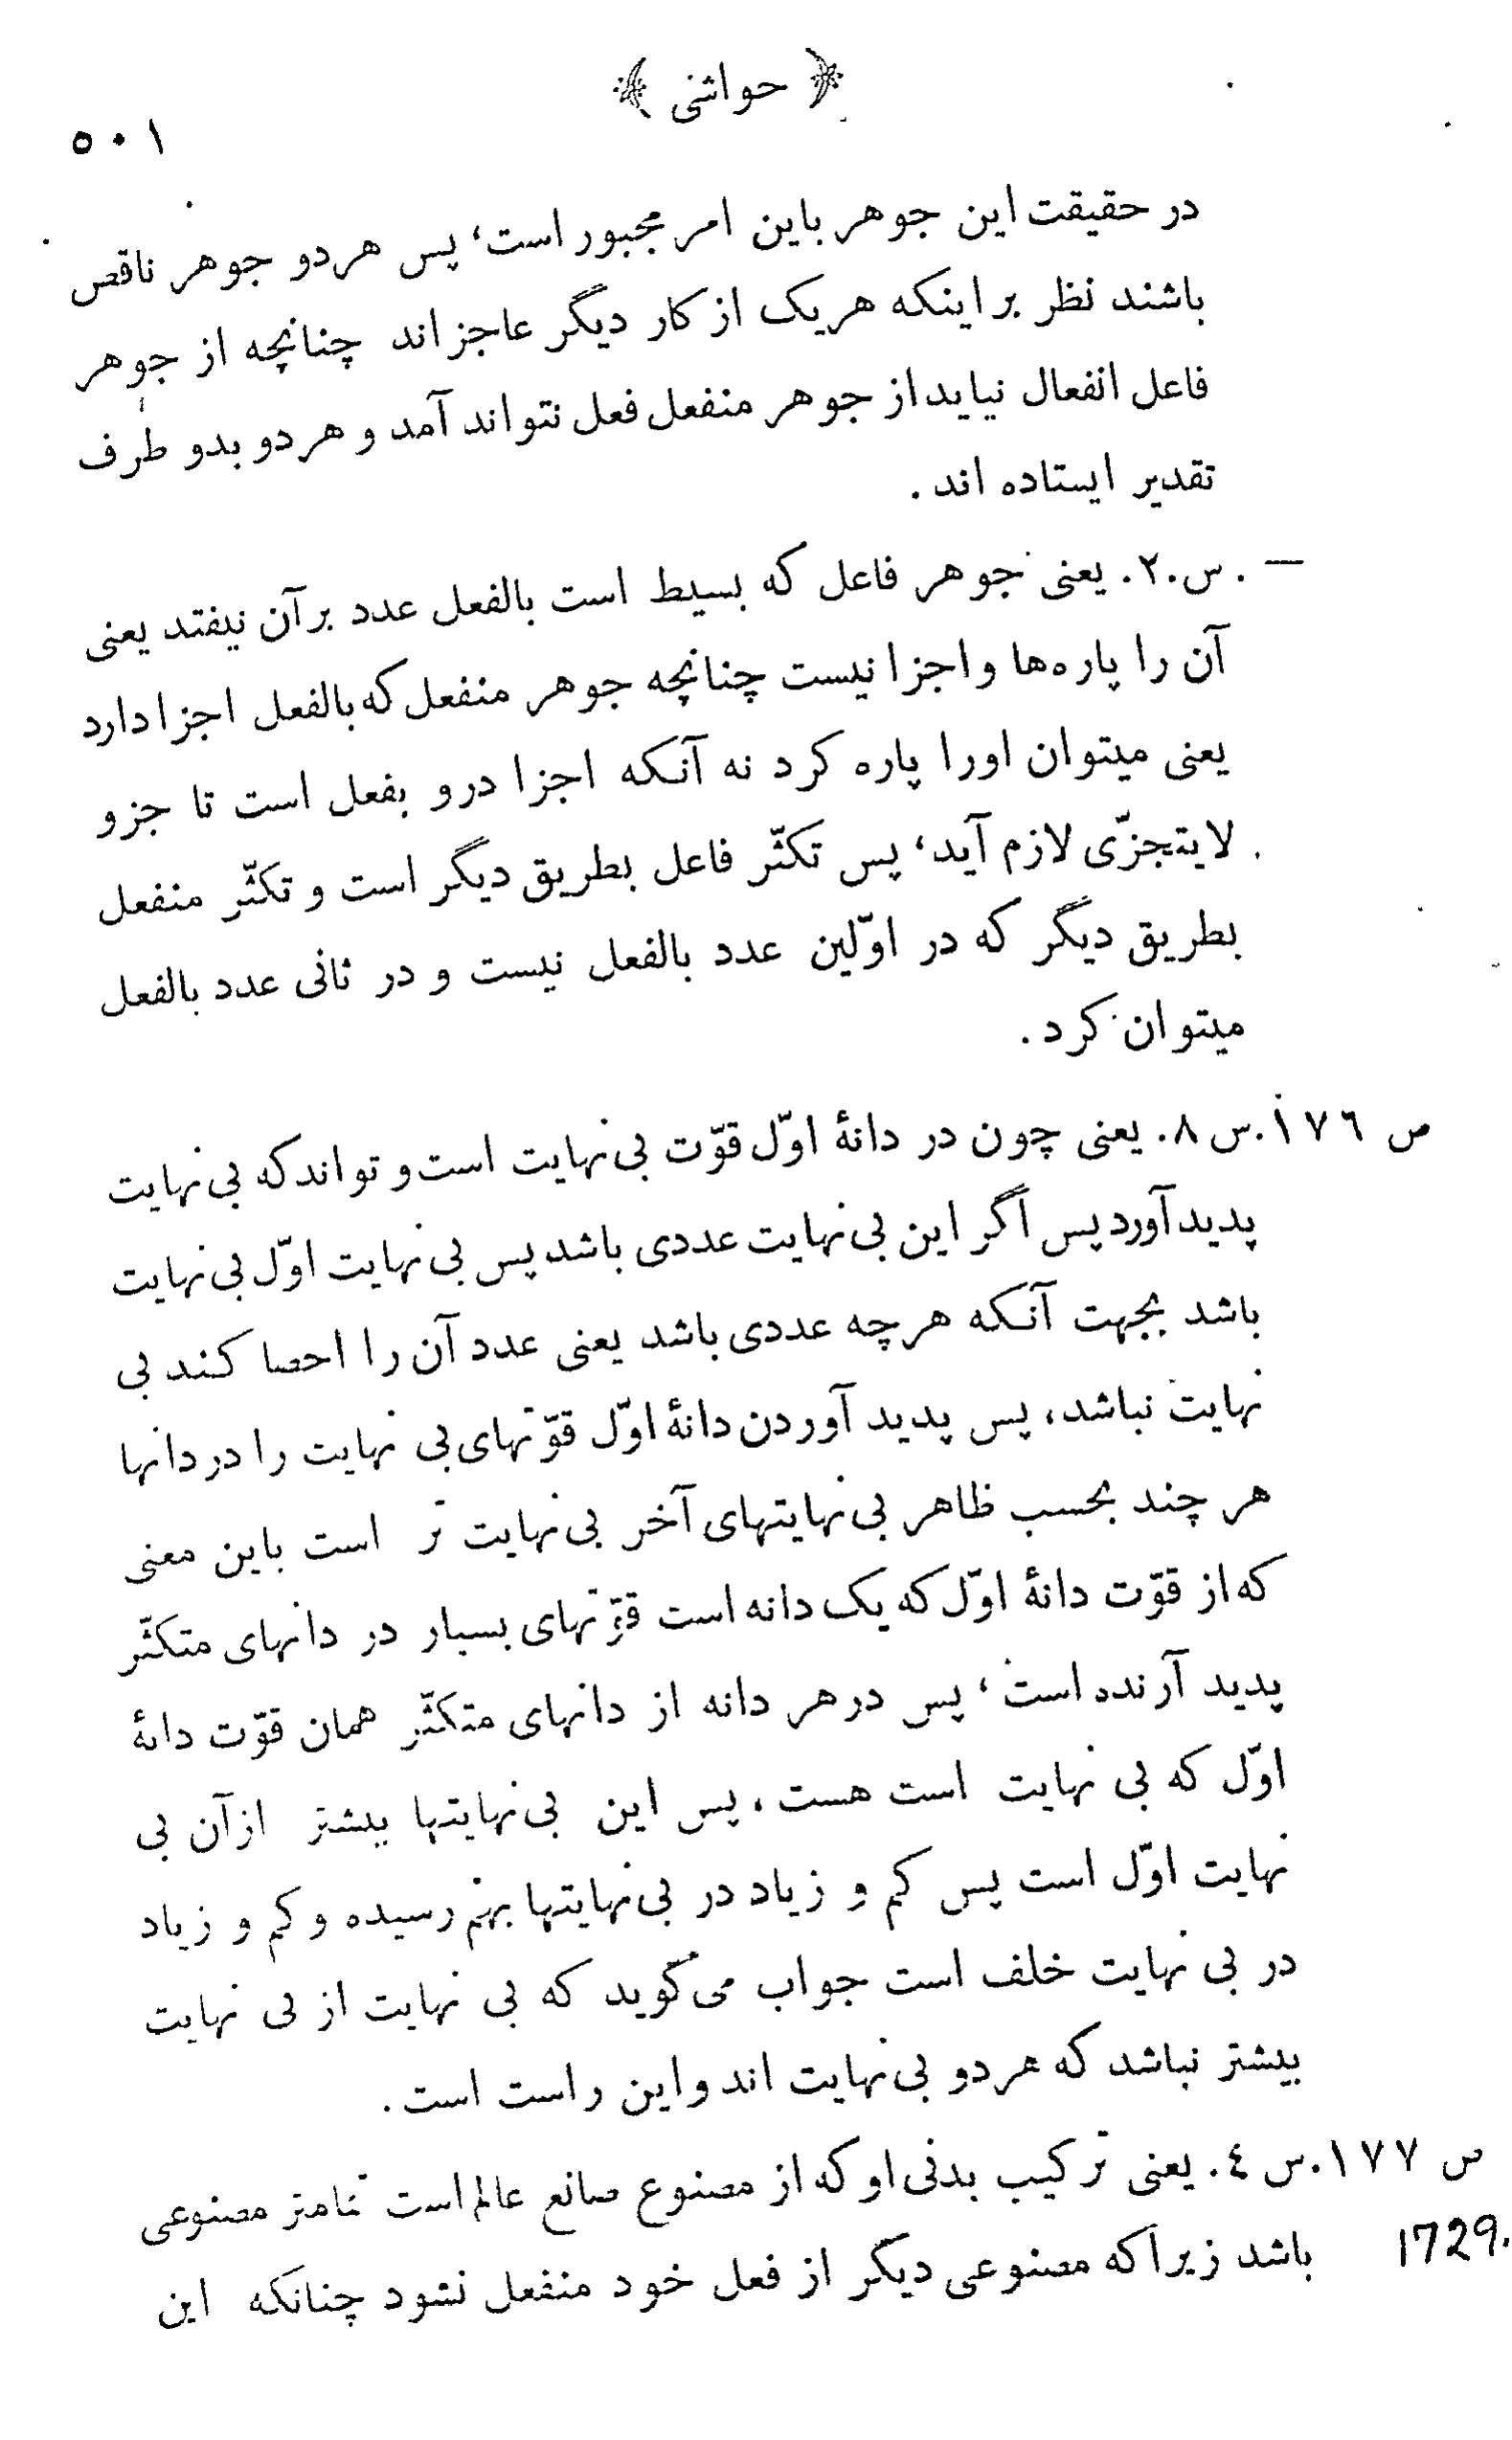 ﴿ حواشی ﴾
٥٠١
در حقیقت این جوهر باین امر مجبور است، پس هر دو جوهر ناقص
باشند نظر بر اینکه هر یک از کار دیگر عاجز اند چنانچه از جوهر
فاعل انفعال نیاید از جوهر منفعل فعل نتواند آمد و هر دو بدو طرف
تقدیر ایستاده اند.
— . س.٢. یعنی جوهر فاعل که بسیط است بالفعل عدد بر آن نیفتد یعنی
آن را پاره‌ها و اجزا نیست چنانچه جوهر منفعل که بالفعل اجزا دارد
یعنی میتوان اورا پاره کرد نه آنکه اجزا درو بفعل است تا جزو
لایتجزّی لازم آید، پس تکثّر فاعل بطریق دیگر است و تکثّر منفعل
بطریق دیگر که در اوّلین عدد بالفعل نیست و در ثانی عدد بالفعل
میتوان کرد.
ص ١٧٦.س ٨. یعنی چون در دانهٔ اوّل قوّت بی‌نهایت است و تواند که بی‌نهایت
پدید آورد پس اگر این بی‌نهایت عددی باشد پس بی‌نهایت اوّل بی‌نهایت
باشد بجهت آنکه هر چه عددی باشد یعنی عدد آن را احصا کند بی
نهایت نباشد، پس پدید آوردن دانهٔ اوّل قوّتهای بی نهایت را در دانها
هر چند بحسب ظاهر بی‌نهایتهای آخر بی‌نهایت تر است باین معنی
که از قوّت دانهٔ اوّل که یک دانه است قوّتهای بسیار در دانهای متکثّر
پدید آرنده است، پس در هر دانه از دانهای متکثّر همان قوّت دانهٔ
اوّل که بی نهایت است هست، پس این بی‌نهایتها بیشتر از آن بی
نهایت اوّل است پس کم و زیاد در بی‌نهایتها بهم رسیده و کم و زیاد
در بی نهایت خلف است جواب می‌گوید که بی نهایت از بی نهایت
بیشتر نباشد که هر دو بی‌نهایت اند و این راست است.
ص ١٧٧.س ٤. یعنی ترکیب بدنی او که از مصنوع صانع عالم است تمامتر مصنوعی
باشد زیرا که مصنوعی دیگر از فعل خود منفعل نشود چنانکه این
1729.